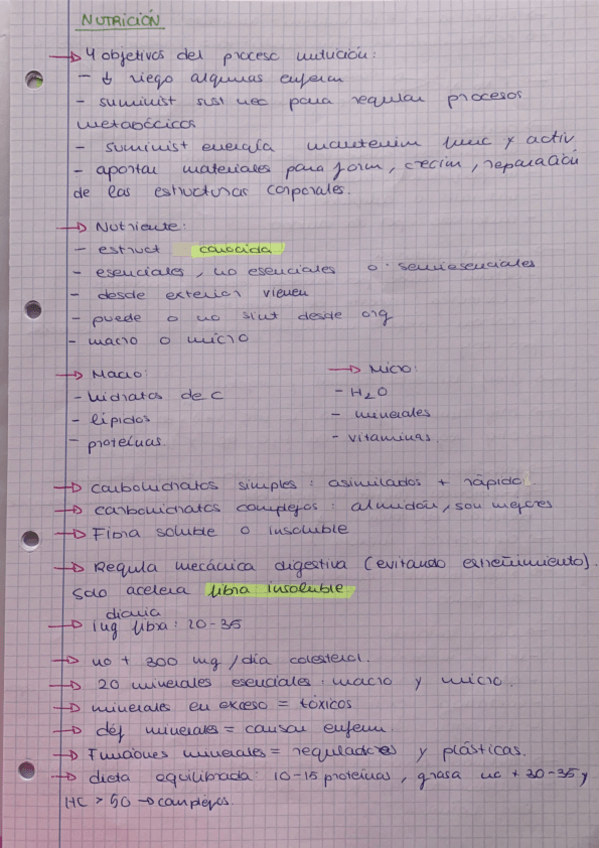 NUTRICIÓN
→ 4 objetivos del proceso nutrición:
- ↓ riego algunas enferm
- suminist sust nec para regular procesos
metabólicos
- suminist energía mantenim func y activ
- aportar materiales para form, crecim, reparación
de las estructuras corporales.
→ Nutriente:
- estruct conocida
- esenciales, no esenciales o semiesenciales
- desde exterior vienen
- puede o no sint desde org
- macro o micro
→ Macro:
- hidratos de c
- lípidos
- proteínas.
→ Micro:
- H2O
- minerales
- vitaminas.
→ carbohidratos simples: asimilados + rápido.
→ carbohidratos complejos: almidón, son mejores
→ Fibra soluble o insoluble
→ Regula mecánica digestiva (evitando estreñimiento).
Solo acelera fibra insoluble
diaria
→ ing fibra: 20-35
→ no + 300 mg/día colesterol.
→ 20 minerales esenciales: macro y micro.
→ minerales en exceso = tóxicos
→ déf minerales = causar enferm.
→ Funciones minerales = reguladores y plásticas.
→ dieta equilibrada: 10-15 proteínas, grasa no + 30-35 y
HC > 50 → complejos.